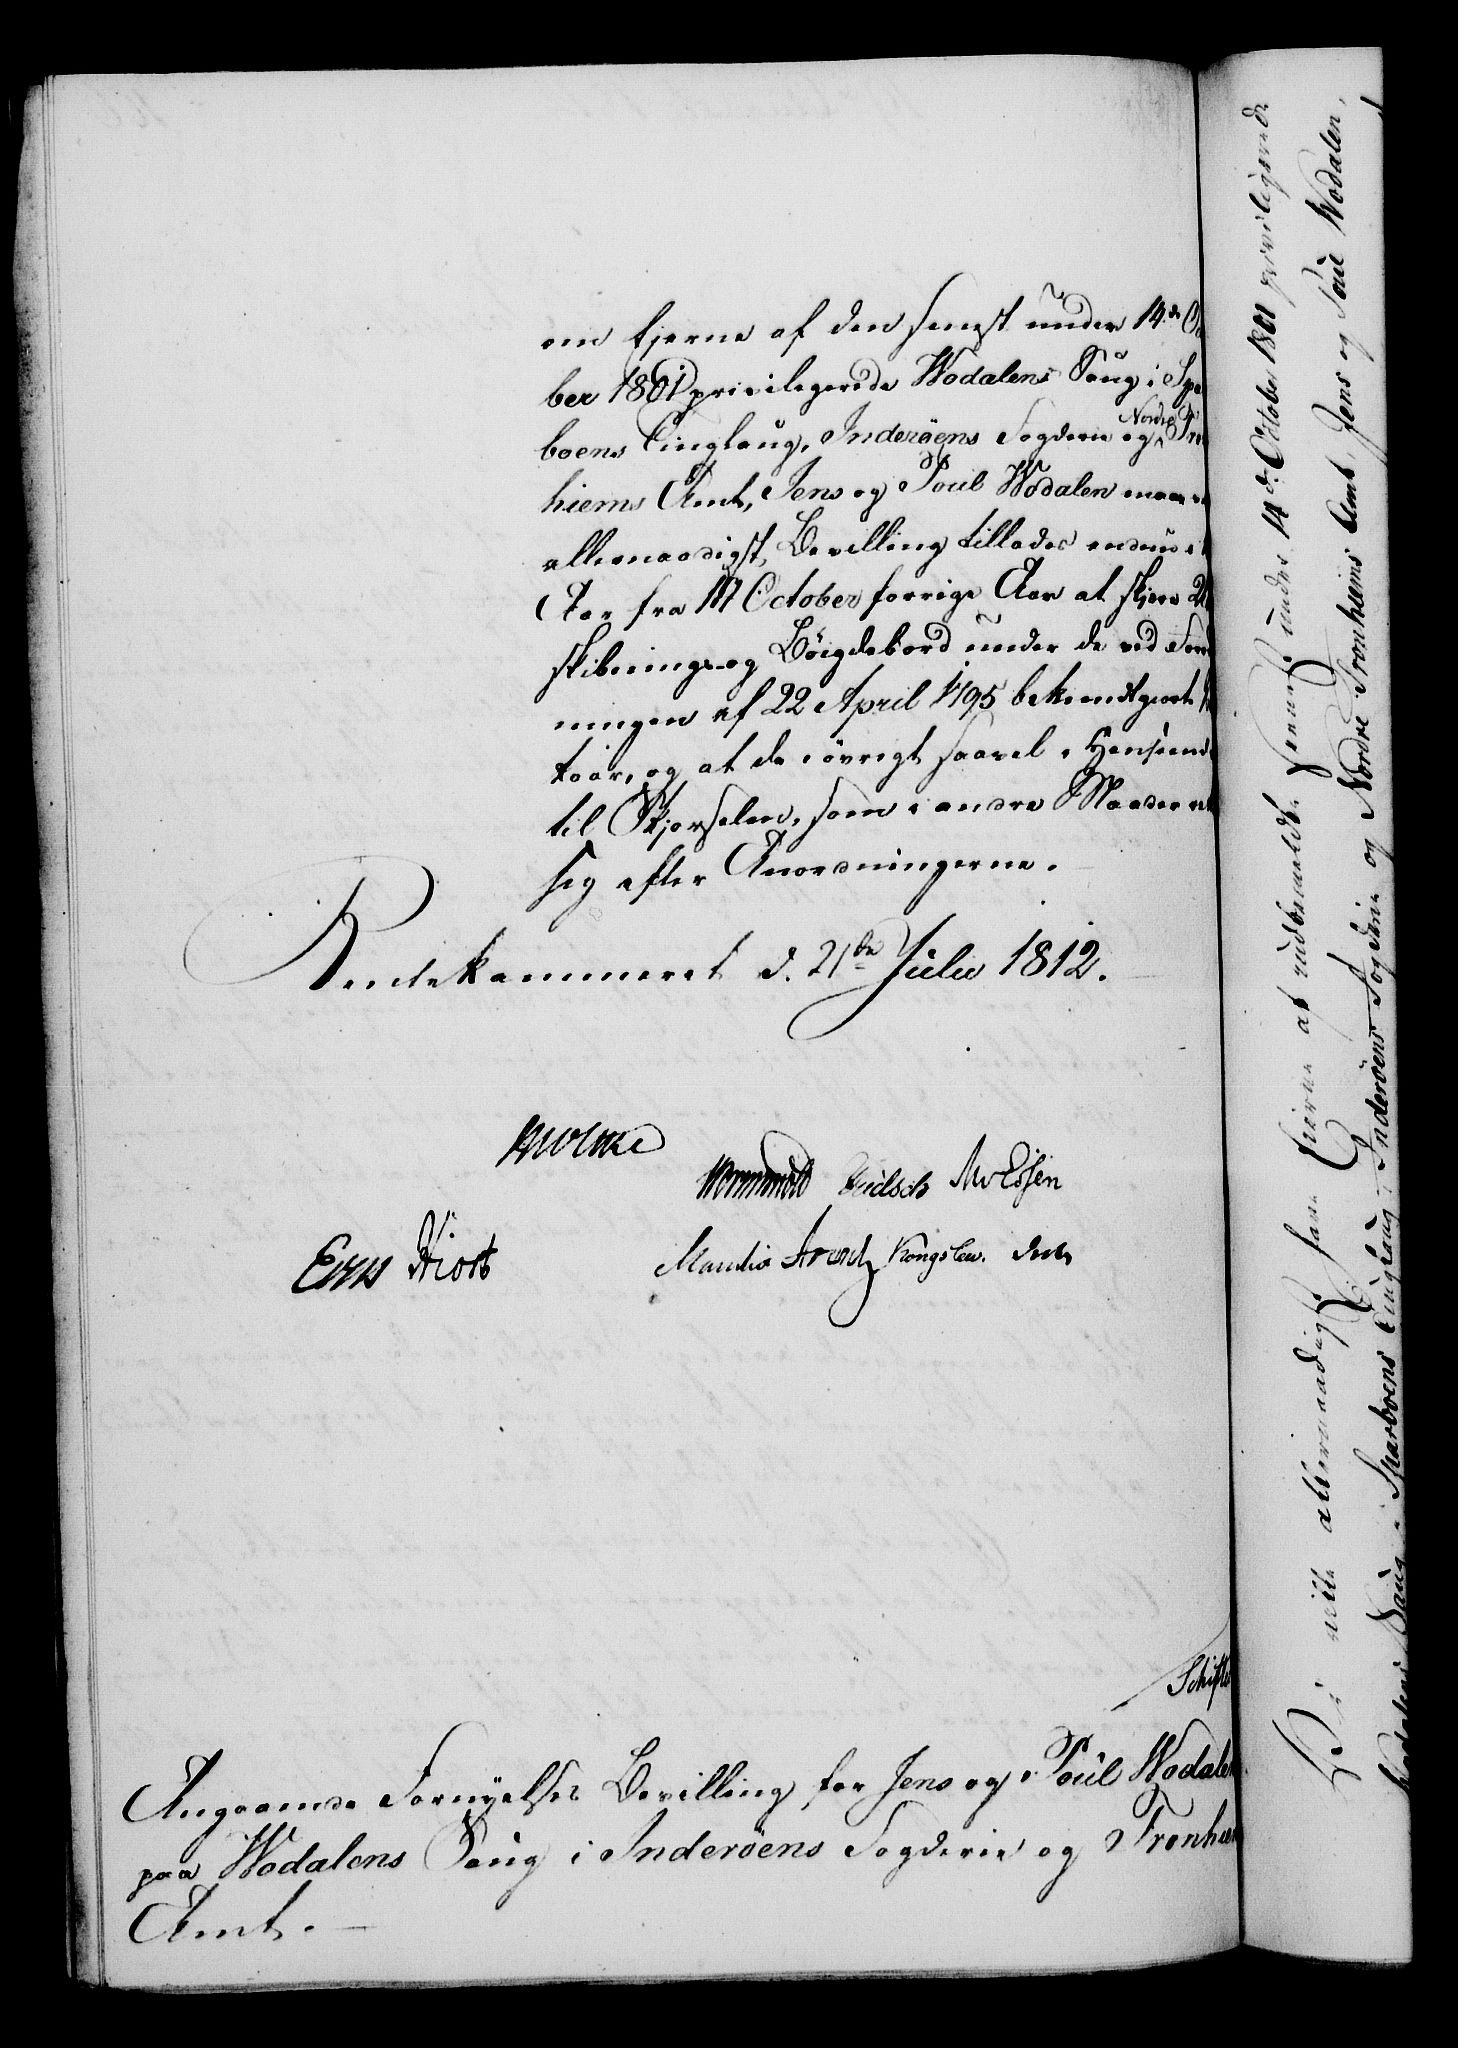 om Ejerne af den senest under 14.de
ber 1801 privilegerede Wodalens Saug i
boens Tinglaug, Inderøens Fogderie og Nordre
hiems Amt, Jens og Poul Wodalen maae
allernaadigst Bevilling tillades endnu i
Aar fra 14 October forrige Aar at skjære
skibnings og Böigdebord under de ved
ningen af 22 April 1795 bekiendtgiorte
taar, og at de i øvrigt saavel i Henseende
til Skjørselen, som i andre Maader
sig efter Anordningerne.
Rentekammeret d. 21de Julii 1812.
Moltke
Wormskiold Müldsch
Hiort
Arentz Kongslew.
Schifte
Angaaende Fornyelses Bevilling for Jens og Poul Wodalen
paa Wodalens Saug i Inderöens Fogderie og Tronhiems
Amt.
Vi ville allernaadigst have Eierne af indbemeldte senest under 14de October 1801 privilegerede
Wodalens Saug i Sparboens Tinglaug, Inderöens Fogderie og Nordre Tronhiems Amt, Jens og Poul Wodalen,